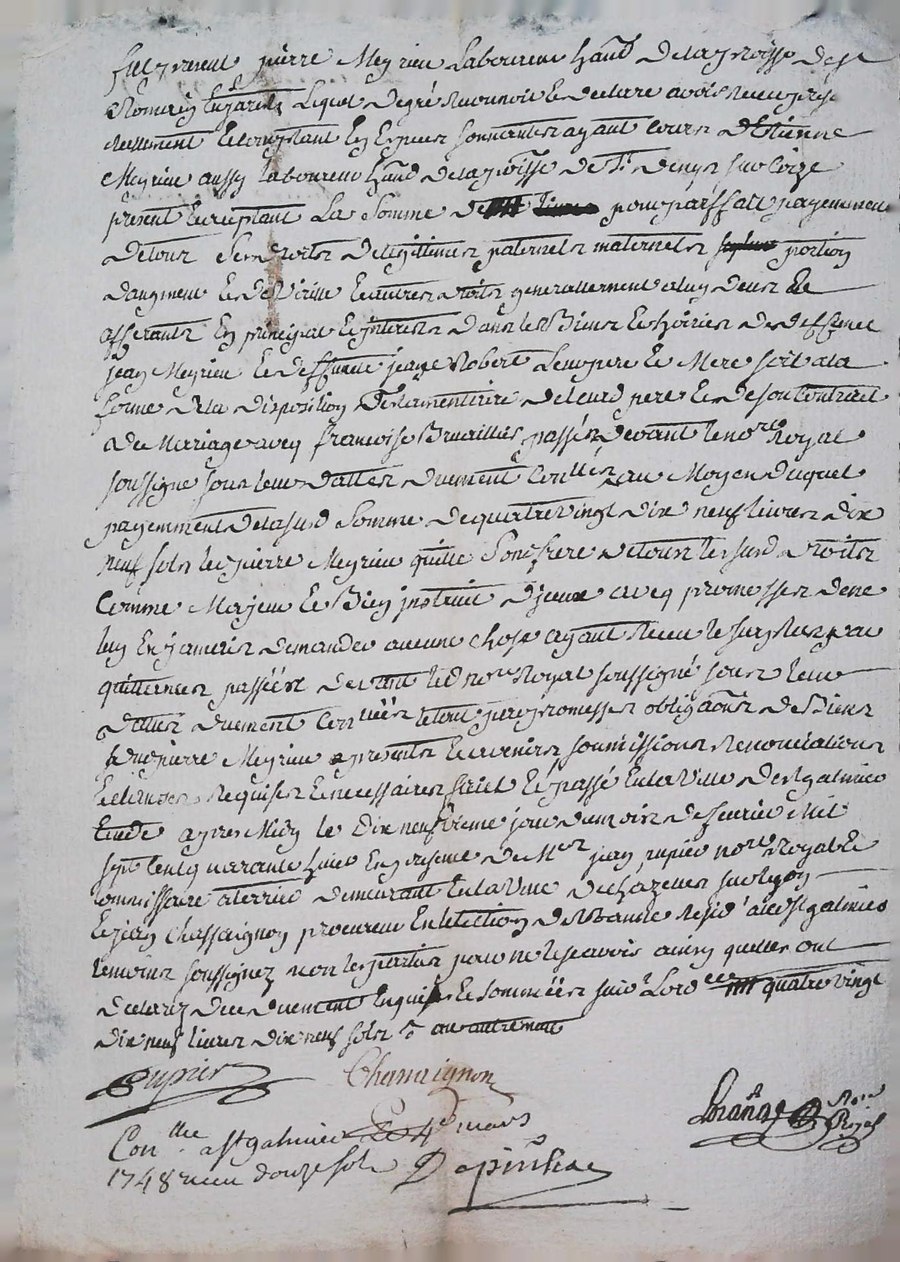 fut present pierre Meyrieu Laboureur habt de la parroisse de st
Romain Lequel de gré reconnoit et declare avoir reçeu
reellement et comptant en Especes sonnantes ayant cours d'Etienne
Meyrieu aussy laboureur habt de la parroisse de St Denys sur Coize
present acceptant La Somme de pour parffait payemment
de tour Ses droits de legitimes paternels maternels portion
daugment et de Virille et autres droits generallement a luy deus et
afferants En principal et interests dans les Biens et hoiries de deffunct
jean Meyrieu et deffuncte jeane Robert Leurs pere et Mere soit a la
forme de la disposition Testamentaire de leurd pere et de son Contract
de Mariage avec francoise Bruailles passés devant le nore Royal
soussigné sous leurs dattes duement Conllés au Moyen duquel
payemment de lasusd Somme de quatre vingt dix neuf livres dix
neuf sols led pierre Meyrieu quitte Son frere de tous les susd droits
Comme Majeur et Bien instruit d'jceux avec promesses de ne
luy En jamais demander aucune chose ayant receu le surplus par
quittances passées devant led nore Royal soussigné sous leurs
dattes duement Conllées le tout par promesses obligaons de Biens
dud pierre Meyrieu presents et avenirs soumissions Renonciations
et clauses Requises et necessaires fait et passé En la Ville de St galmier
Etude apres Midy le dix neufvieme jour du mois de fevrier Mil
sept Cents quarante huict En presence de Me jean pupier nore Royal et
Commissaire a terrier demeurant En la Ville de chazelles sur Lyon
Et jean Chassaignon procureur En lelection de Roanne Resid' aud St galmier
temoins soussignez non les parties pour ne le scavoir ainsy quelles ont
declaré de ce duement Enquises et Sommées suivt Lordce quatre vingt
dix neuf livres dix neuf sols
pupier Chassaignon
nore Royal
Conlle a St galmier Le 4e mars
1748 receu douze sols Dapinhac